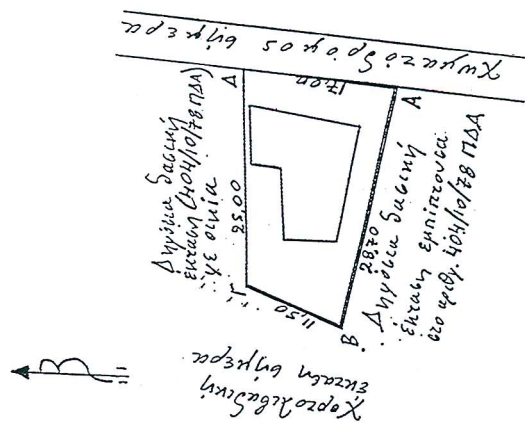 Χωματόδρομος σήμερα
Δ
17,00
Α
Δημόσια δασική
έκταση (404/10/78 ΠΔΑ)
με οικία
25,00
28,70
Δημόσια δασική
έκταση εμπίπτουσα
στο αριθμ. 404/10/78 ΠΔΑ
Γ
11,50
Β
Χορτολιβαδική
έκταση σήμερα
Β